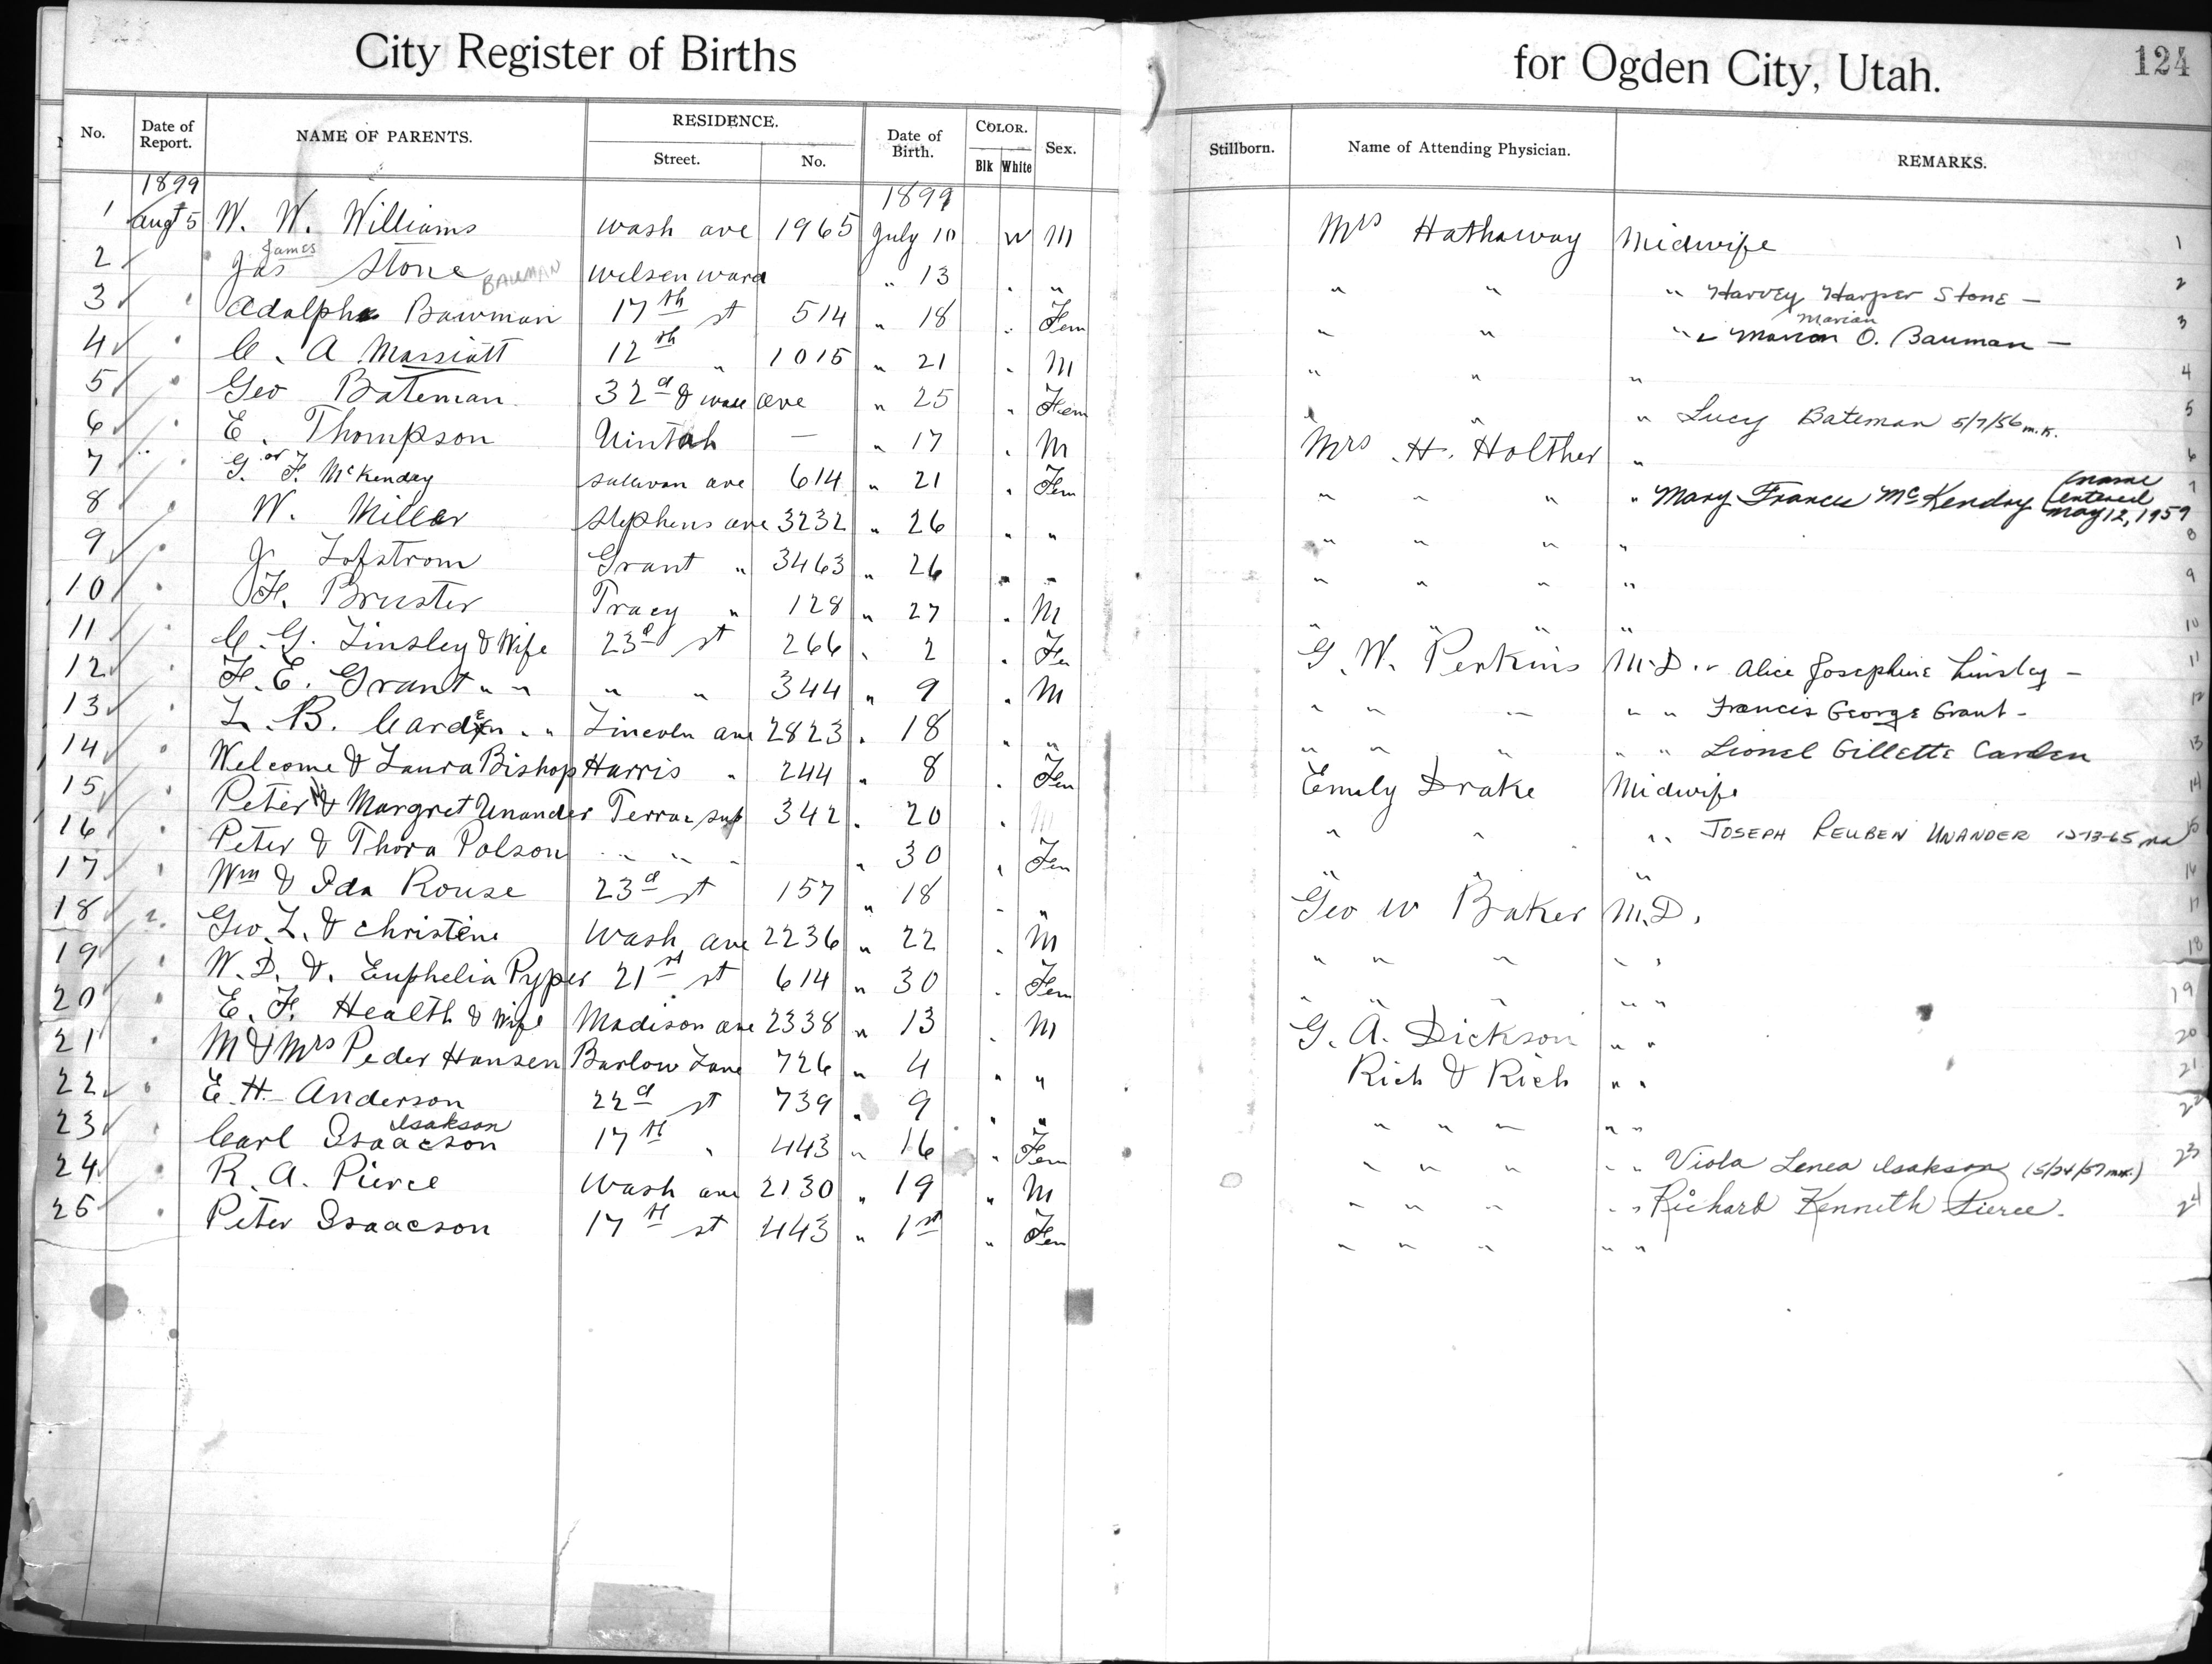 City Register of Births for Ogden City, Utah. 124
No. Date of Report. NAME OF PARENTS. RESIDENCE. Street. No. Date of Birth. COLOR. Blk White Sex. Stillborn. Name of Attending Physician. REMARKS.
1899 1899
1 Augt 5 W. W. Williams Wash ave 1965 July 10 W M Mrs Hathaway Midwife 1
James
2 Jas Stone Wilsen ward " 13 " " " " " Harvey Harper Stone — 2
BAUMAN
3 Adolph Bowman 17th st 514 " 18 " Fem " " " Marion O. Bauman — 3
Marian
4 C. A Marriott 12th " 1015 " 21 " M " " " 4
5 Geo Bateman 32d & wall ave " 25 " Fem " " " Lucy Bateman 5/7/56 m.k. 5
6 E. Thompson Uintah — " 17 " M Mrs H. Holther " 6
7 G. or F. McKendry Sullivan ave 614 " 21 " Fem " " " " Mary Frances McKendry (name entered May 12, 1959 7
8 W. Miller Stephens ave 3232 " 26 " " " " " " 8
9 J. Lofstrom Grant " 3463 " 26 " " " " " " 9
10 F. Bruster Tracy " 128 " 27 " M " " " " 10
11 C. G. Linsley & Wife 23d st 266 " 2 " Fe G. W. Perkins M.D. " Alice Josephine Linsley — 11
12 F. E. Grant " " " " 344 " 9 " M " " " " " Francis George Grant — 12
13 L. B. Carden " " Lincoln ave 2823 " 18 " " " " " " " Lionel Gillette Carden 13
14 Welcome & Laura Bishop Harris " 244 " 8 " Fem Emily Drake Midwife 14
15 Peter N & Margret Unander Terrace sub 342 " 20 " M " " " " JOSEPH REUBEN UNANDER 12-13-65 ma 15
16 Peter & Thora Polson " " " " 30 " Fem " " " 16
17 Wm & Ida Rouse 23d st 157 " 18 " " Geo W Baker M.D. 17
18 Geo. L. & Christine Wash ave 2236 " 22 " M " " " " " 18
19 W. D. & Euphelia Pyper 21st st 614 " 30 " Fem " " " " " 19
20 E. F. Health & Wife Madison ave 2338 " 13 " M G. A. Dickson " " 20
21 M & Mrs Peder Hansen Barlow Lane 726 " 4 " " Rich & Rich " " 21
22 E. H. Anderson 22d st 739 " 9 " " " " " " " 22
Isakson
23 Carl Isaacson 17th " 443 " 16 " Fem " " " " " Viola Lenea Isakson (5/24/57 mk.) 23
24 R. A. Pierce Wash ave 2130 " 19 " M " " " " " Richard Kenneth Pierce. 24
25 Peter Isaacson 17th st 443 " 1st " Fem " " " " "